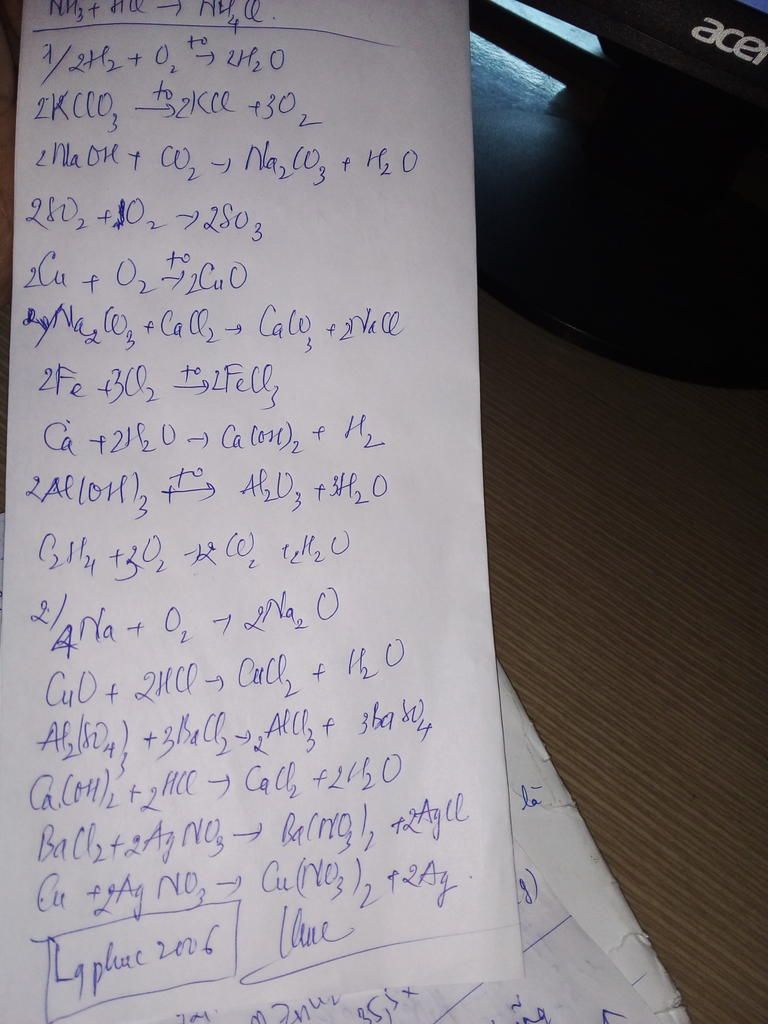 acer
NH₃ + HCl → NH₄Cl.
1/ 2H₂ + O₂ →^(t°) 2H₂O
2KClO₃ →^(t°) 2KCl + 3O₂
2NaOH + CO₂ → Na₂CO₃ + H₂O
2SO₂ + O₂ → 2SO₃
2Cu + O₂ →^(t°) 2CuO
Na₂CO₃ + CaCl₂ → CaCO₃ + 2NaCl
2Fe + 3Cl₂ →^(t°) 2FeCl₃
Ca + 2H₂O → Ca(OH)₂ + H₂
2Al(OH)₃ →^(t°) Al₂O₃ + 3H₂O
C₂H₄ + 3O₂ → 2CO₂ + 2H₂O
2/ 4Na + O₂ → 2Na₂O
CuO + 2HCl → CuCl₂ + H₂O
Al₂(SO₄)₃ + 3BaCl₂ → 2AlCl₃ + 3BaSO₄
Ca(OH)₂ + 2HCl → CaCl₂ + 2H₂O
là
BaCl₂ + 2AgNO₃ → Ba(NO₃)₂ + 2AgCl
Cu + 2AgNO₃ → Cu(NO₃)₂ + 2Ag.
g)
Lqphuc2006